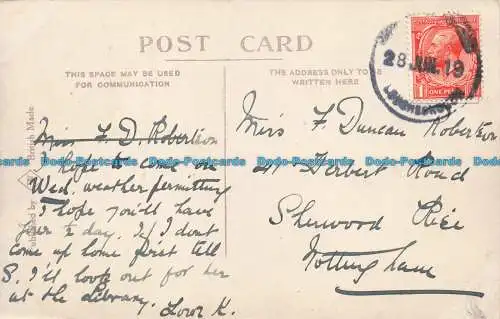 POST CARD
THIS SPACE MAY BE USED
FOR COMMUNICATION
THE ADDRESS ONLY TO BE
WRITTEN HERE
British Made
Miss F. D. Robertson
I hope to come on
Wed. weather permitting
I hope you'll have
your ½ day. If I don't
come up home first tell
S. I'll look out for her
at the Library.
Love K.
Miss F. Duncan Robertson
Herbert Road
Sherwood Rise
Nottingham
28 JUL 19
LOUGHBOROUGH
ONE PENNY
Postcards-Live.com Postcards-Live.com Postcards-Live.com